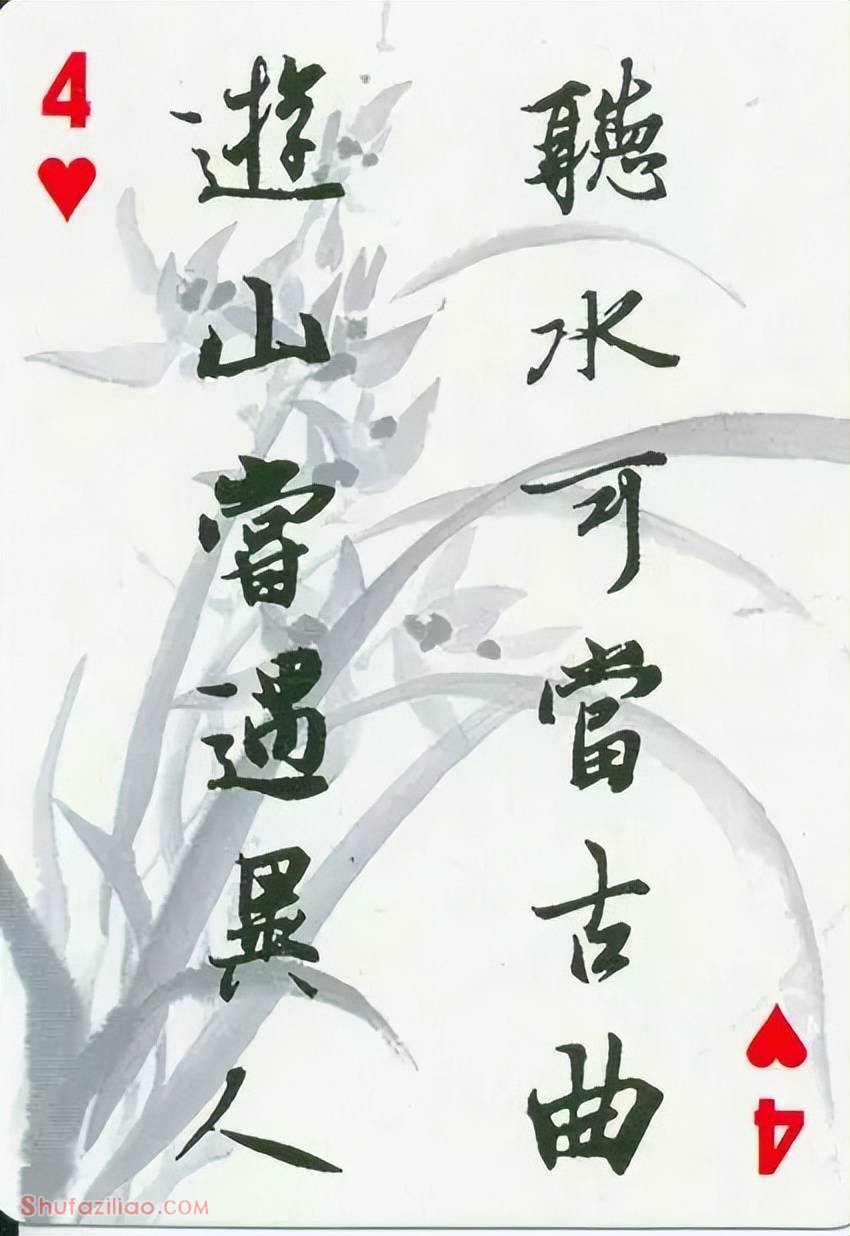 4
聽水可當古曲
遊山嘗遇異人
4
Shufaziliao.COM